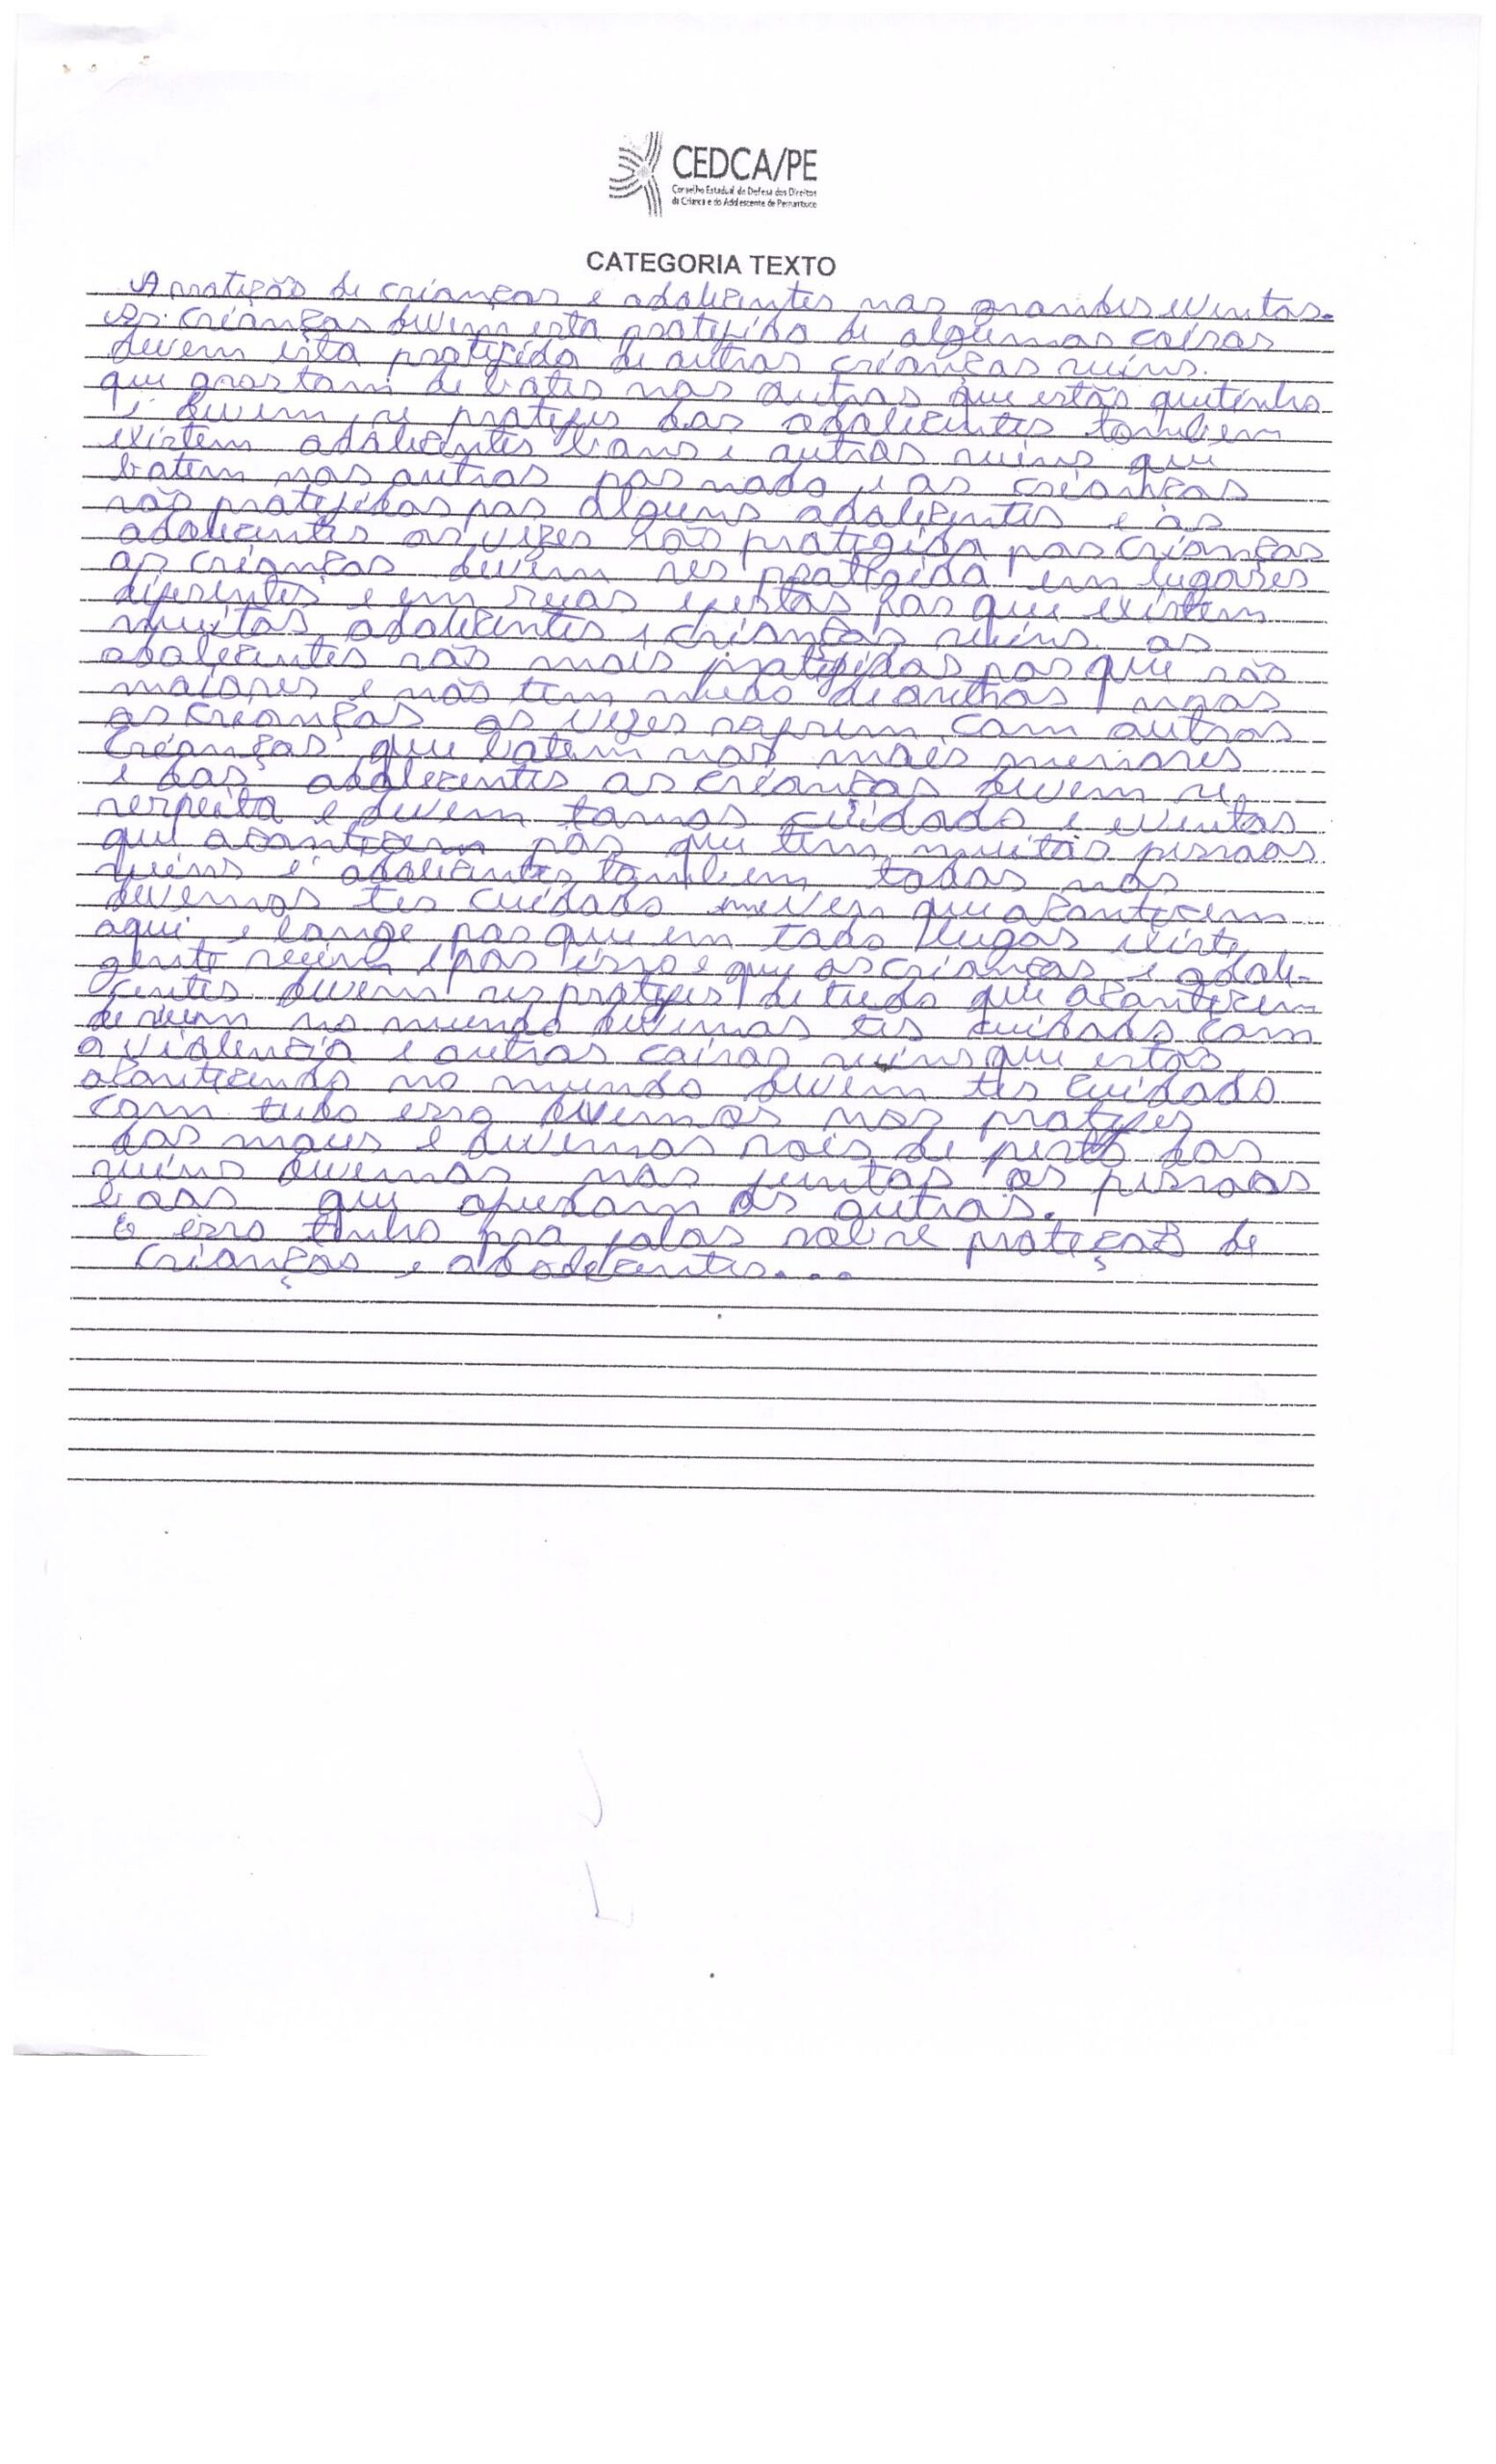 CEDCA/PE
Conselho Estadual de Defesa dos Direitos
da Criança e do Adolescente de Pernambuco
CATEGORIA TEXTO
A proteção de crianças e adolicentes nos grandes eventos.
As crianças devem esta protejida de algumas coisas
devem esta protejida de outras crianças ruins.
que gostam de bater nas outras que estão quetinho
e devem se proteger dos adolicentes tombem
existem adolicentes bons e outros ruins que
batem nos outros por nada e as crianças
são protejidas por alguns adolicentes e os
adolicentes as vezes são protegida por crianças
as crianças devem ser protegida em lugares
diferentes e em ruas por que existem
muitos adolicentes e crianças ruins os
adolecentes são mais protejidos por que são
maiores e não tem medo de outros mas
as crianças as vezes sofrem com outras
crianças que batem nos mais menores
e dos adolecentes as crianças devem se
respeita e devem tomar cuidado e eventos
que acontecem por que tem muitas pessoas
ruins e adolicentes tombem todos nós
devemos ter cuidado que acontecem
aqui e longe por que em todo lugar existe
gente ruim e por isso e que as crianças e adoli-
centes devem ser proteger de tudo que acontecem
de ruim no mundo devemos ter cuidado com
a violencia e outras coisas ruins que estão
acontecendo no mundo devem ter cuidado
com tudo isso devemos nos proteger
dos maus e devemos sair de perto dos
ruins devemos nos juntar as pessoas
boas que ajudam os outros.
E isso tenho pra falar sobre proteção de
crianças e adodecentes...